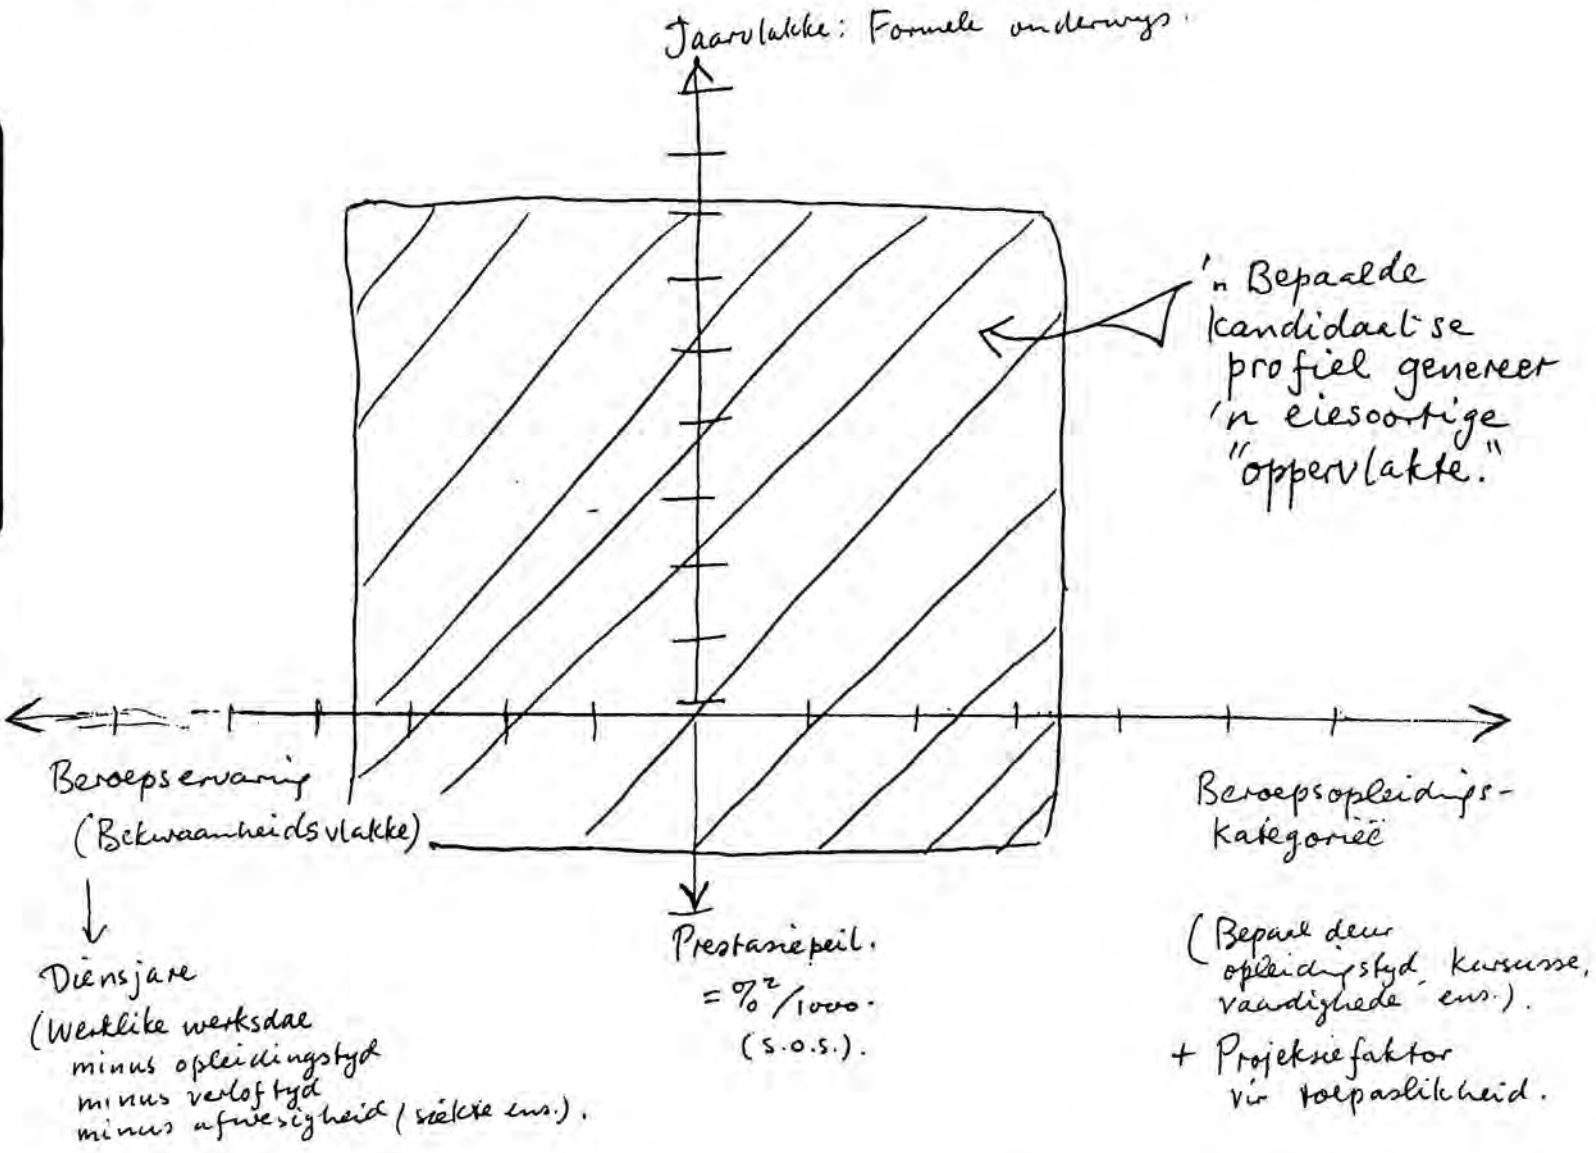 Jaarvlakke: Formele onderwys.
'n Bepaalde
kandidaat se
profiel genereer
'n eiesoortige
"oppervlakte."
Beroepservaring
(Bekwaamheidsvlakke)
Diensjare
(Werklike werksdae
minus opleidingstyd
minus verloftyd
minus afwesigheid (siekte ens.).
Prestasiepeil.
= %²/1000.
(s.o.s.).
Beroepsopleidings-
kategorieë
(Bepaal deur
opleidingstyd, kursusse,
vaardighede ens.).
+ Projeksiefaktor
vir toepaslikheid.